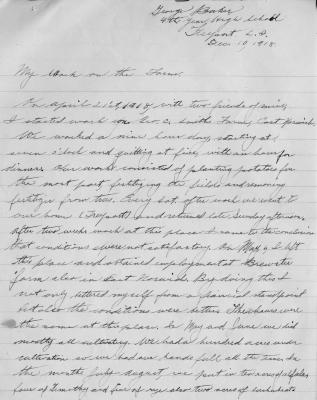 George Baker
4th Year High School
Freeport L.I.
Dec. 19, 1918.
My Work on the Farm
On April 21st, 1918, with two friends of mine
I started work on Geo. C. Smith Farm, East Norwich.
We worked a nine hour day, starting at
seven o'clock and quitting at five, with an hour for
dinner. Our work consisted of planting potatoes for
the most part fertilizing the fields and removing
fertilizer from trees. Every Sat. after work we went to
our home (Freeport) and returned late Sunday afternoon.
After two weeks work at this place I came to the conclusion
that conditions were not satisfactory. On May 4 I left
this place and obtained employment at Brewster
farm also in East Norwich. By doing this I
not only bettered myself from a financial standpoint
but also the conditions were better. The hours were
the same at this place. In May and June we did
mostly all cultivating. We had a hundred acres under
cultivation so we had our hands full all the time. In
the month July August, we put in two acres of alfalfa,
four of Timothy and five of rye also two acres of